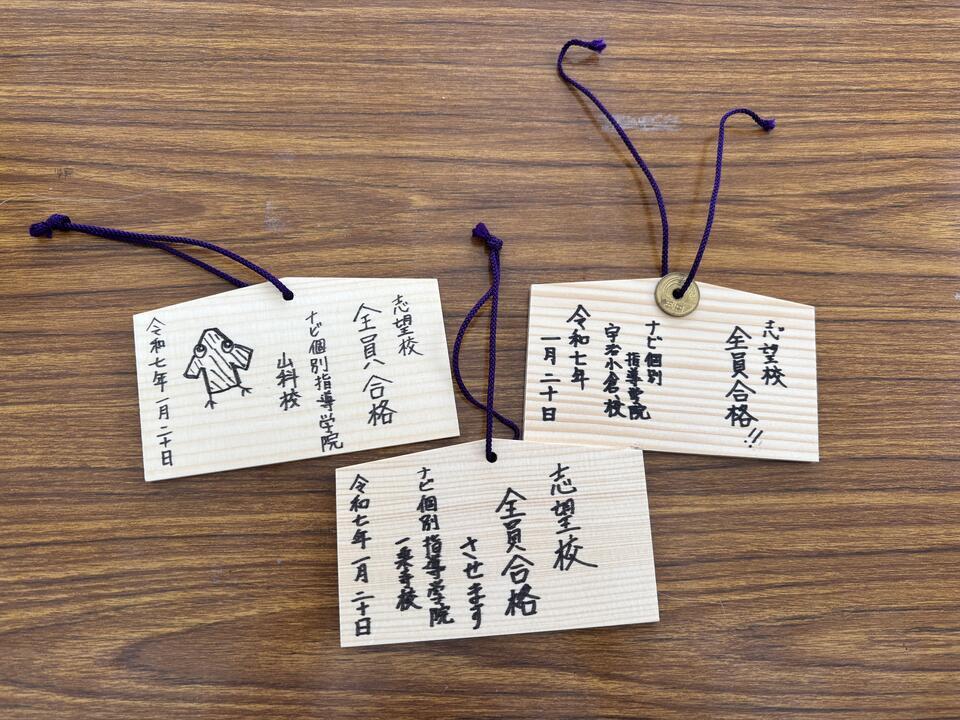 志望校
全員合格
ナビ個別指導学院
山科校
令和七年一月二十日
志望校
全員合格
させます
ナビ個別指導学院
一乗寺校
令和七年一月二十日
志望校
全員合格!!
ナビ個別
指導学院
宇治小倉校
令和七年
一月二十日